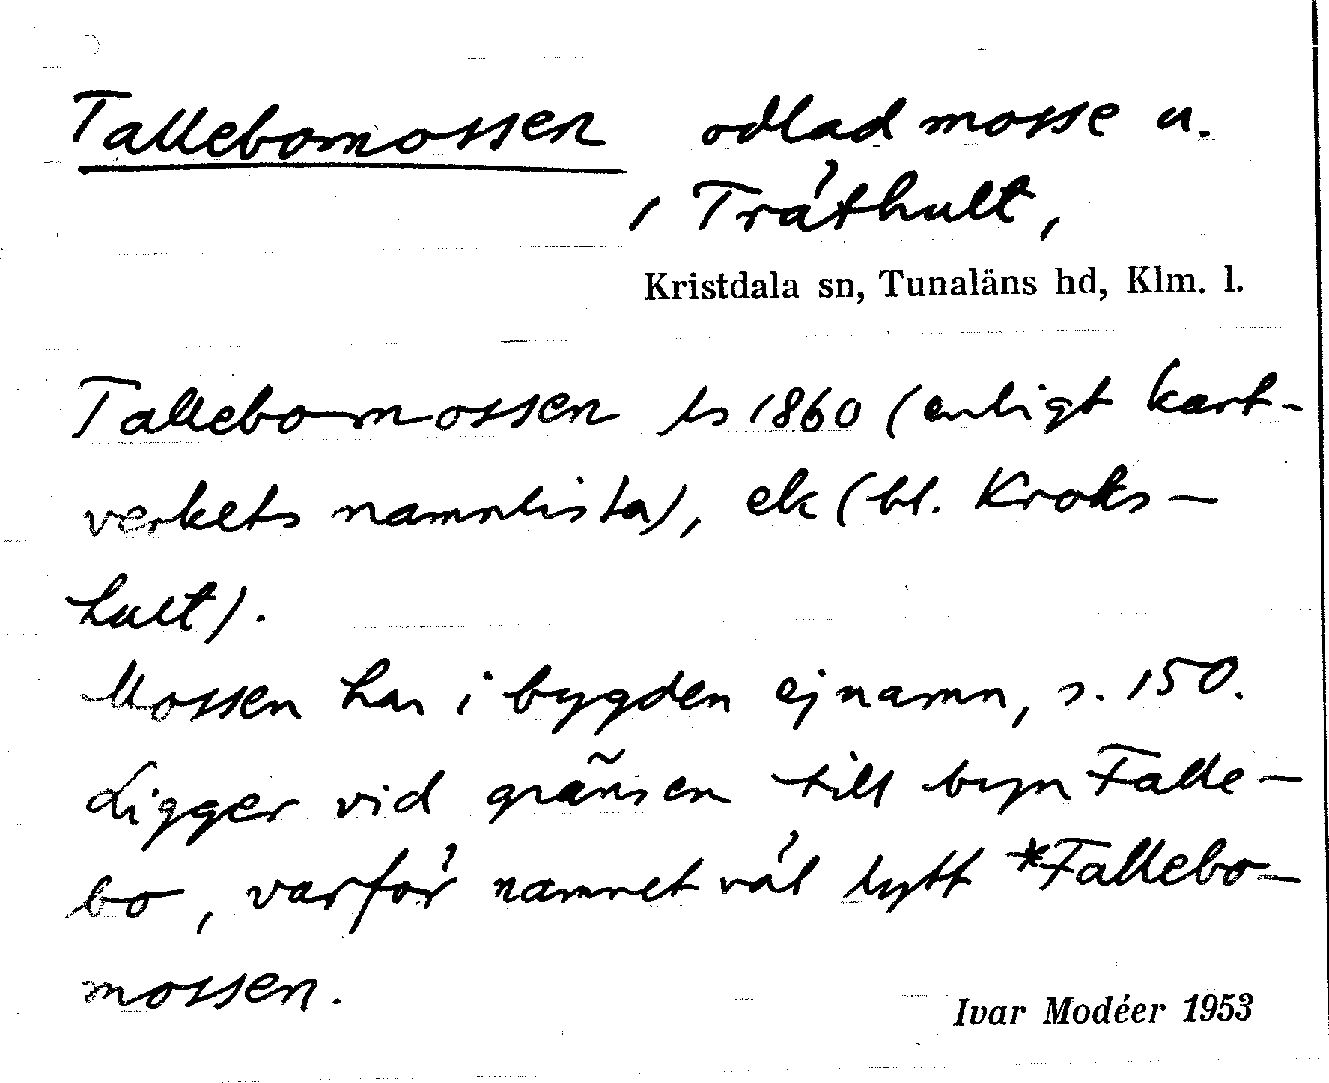 Tallebomossen odlad mosse u.
, Tråthult,
Kristdala sn, Tunaläns hd, Klm. l.
Tallebomossen ls 1860 (enligt kart-
verkets namnlista), ek (bl. Kroks-
hult).
Mossen har i bygden ej namn, s. 150.
Ligger vid gränsen till byn Falle-
bo, varför namnet väl lytt *Fallebo-
mossen.
Ivar Modéer 1953